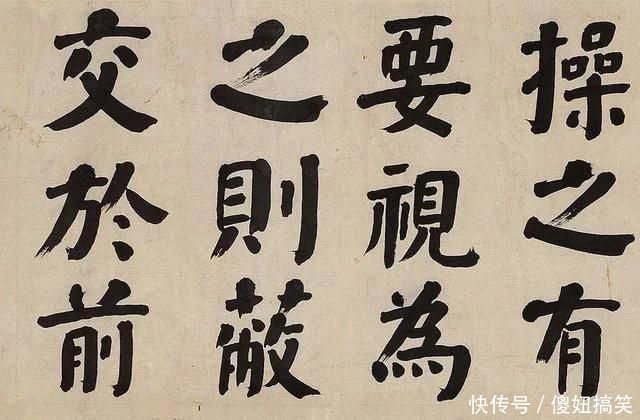 操之有
要視為
之則蔽
交於前
快传号/傻妞搞笑